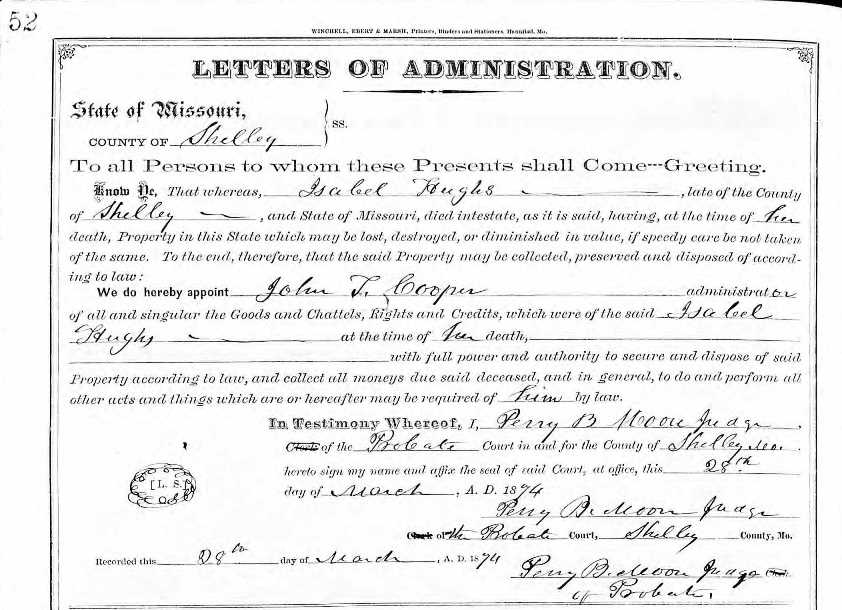 52
WINCHELL, EBERT & MARSH, Printers, Binders and Stationers, Hannibal, Mo.
LETTERS OF ADMINISTRATION.
State of Missouri,
COUNTY OF Shelley } ss.
To all Persons to whom these Presents shall Come---Greeting.
Know Ye, That whereas, Isabel Hughs, late of the County
of Shelley, and State of Missouri, died intestate, as it is said, having, at the time of her
death, Property in this State which may be lost, destroyed, or diminished in value, if speedy care be not taken
of the same. To the end, therefore, that the said Property may be collected, preserved and disposed of accord-
ing to law:
We do hereby appoint John T. Cooper administrator
of all and singular the Goods and Chattels, Rights and Credits, which were of the said Isabel
Hughs at the time of her death,
with full power and authority to secure and dispose of said
Property according to law, and collect all moneys due said deceased, and in general, to do and perform all
other acts and things which are or hereafter may be required of him by law.
In Testimony Whereof, I, Perry B Moon Judge
Clerk of the Probate Court in and for the County of Shelley Mo.
hereto sign my name and affix the seal of said Court, at office, this 28th
[L. S.]
day of March, A. D. 1874
Perry B. Moon Judge
Clerk of the Probate Court, Shelley County, Mo.
Recorded this 28th day of March, A. D. 1874
Perry B. Moon Judge Clerk
of Probate.